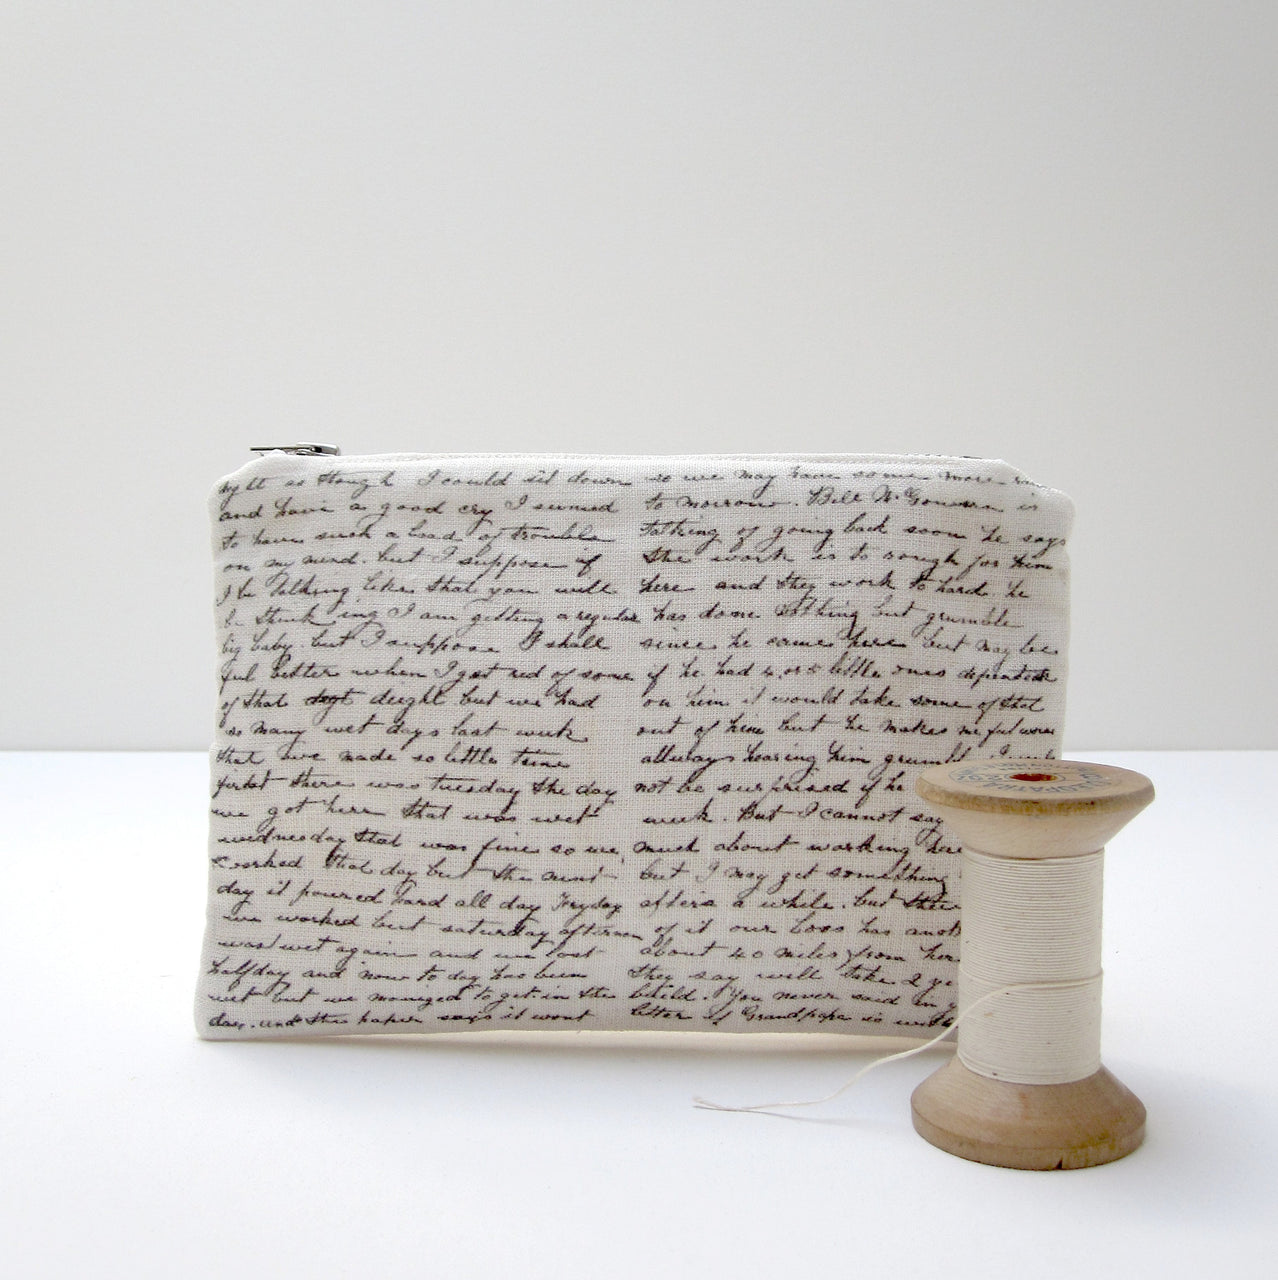 as though I could sit down
and have a good cry I seemed
to have such a load of trouble
on my mind. but I suppose if
I be talking like that you will
be think ing I am getting a regular
big baby. but I suppose I shall
ful better when I get red of some
of that deught but we had
so many wet days last week
that we made so little time
there was tuesday the day
we got here that was wet
wednesday that was fine so we
worked that day but the next
day it poured hard all day Fryday
we worked but saturday afternon
was wet again and we lost
halfday and now to day has been
wet but we maniged to get in the
day. and the paper says it wont
so we may have some more
to morrow. Bill McGowan is
talking of going back soon he says
the work is to rough for him
here and they work to hard. he
has done nothing but grumble
since he came here but may be
if he had 4 or 5 little ones dependent
on him it would take some of that
out of him but he makes me ful worse
allways hearing him grumble I
not be surprised if he
week. But I cannot say
much about working here
but I may get something
afters a while. but
of it our boss has
about 40 miles from
they say will take 2
build. You never said in
letter if Grandpapa is